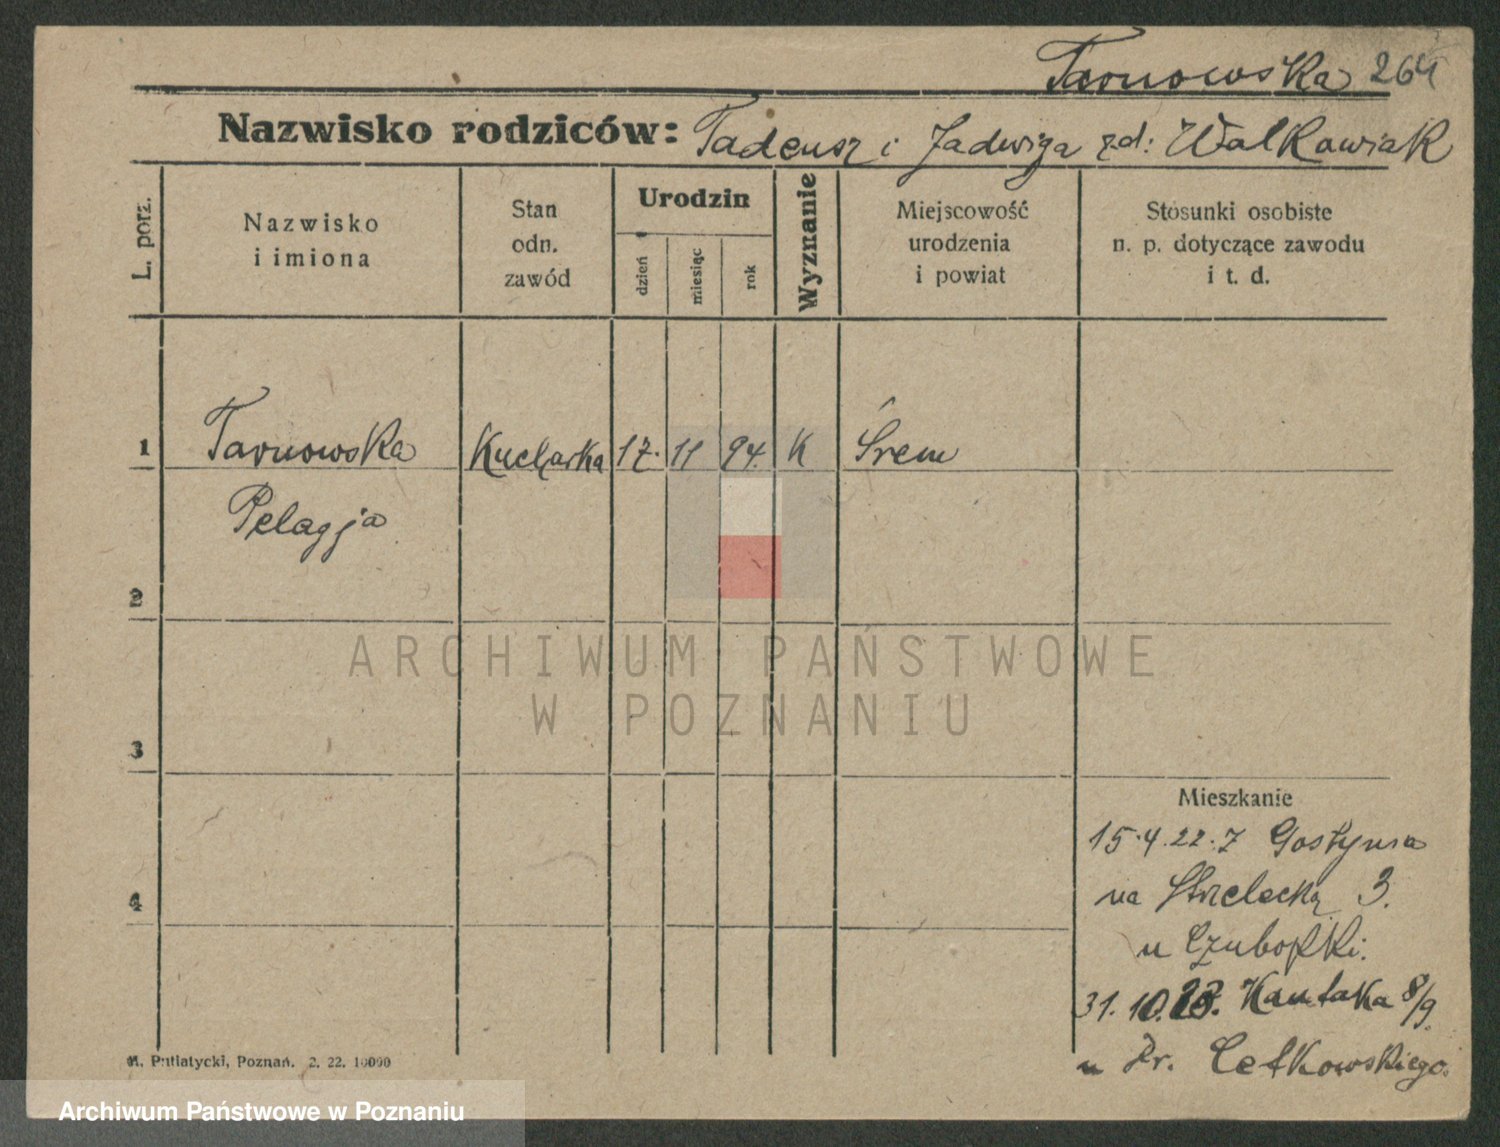 Tarnowska 264
Nazwisko rodziców: Tadeusz i Jadwiga zd: Walkawiak
L. porz.
Nazwisko i imiona
Stan odn. zawód
Urodzin
dzień
miesiąc
rok
Wyznanie
Miejscowość urodzenia i powiat
Stosunki osobiste n. p. dotyczące zawodu i t. d.
1 Tarnowska Kucharka 17. 11 94. K Śrem
Pelagja
2
3
4
Mieszkanie
15.4.22. z Gostynia
na Strzelecką 3.
u
31. 10. 23. Kantaka 8/9
u Dr. Celkowskiego.
M. Putiatycki, Poznań. 2. 22. 10000
ARCHIWUM PAŃSTWOWE
W POZNANIU
Archiwum Państwowe w Poznaniu